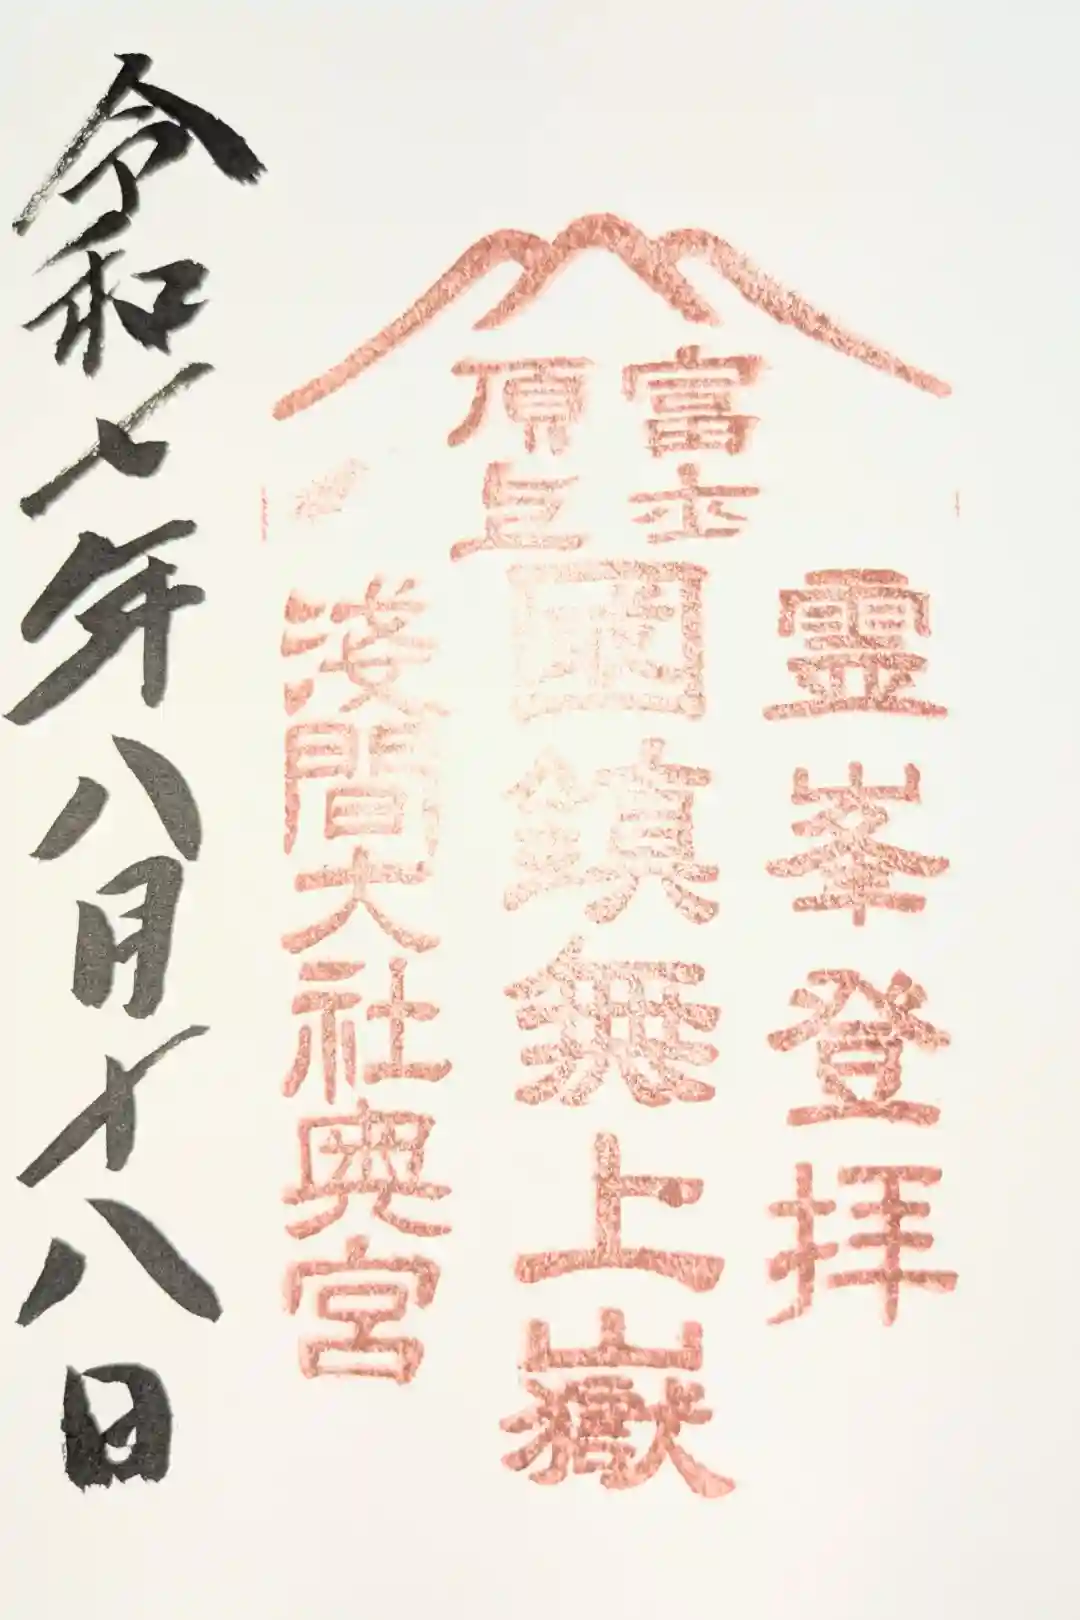 富士
頂上
霊峯登拝
國鎮無上嶽
淺間大社奥宮
令和七年八月十八日